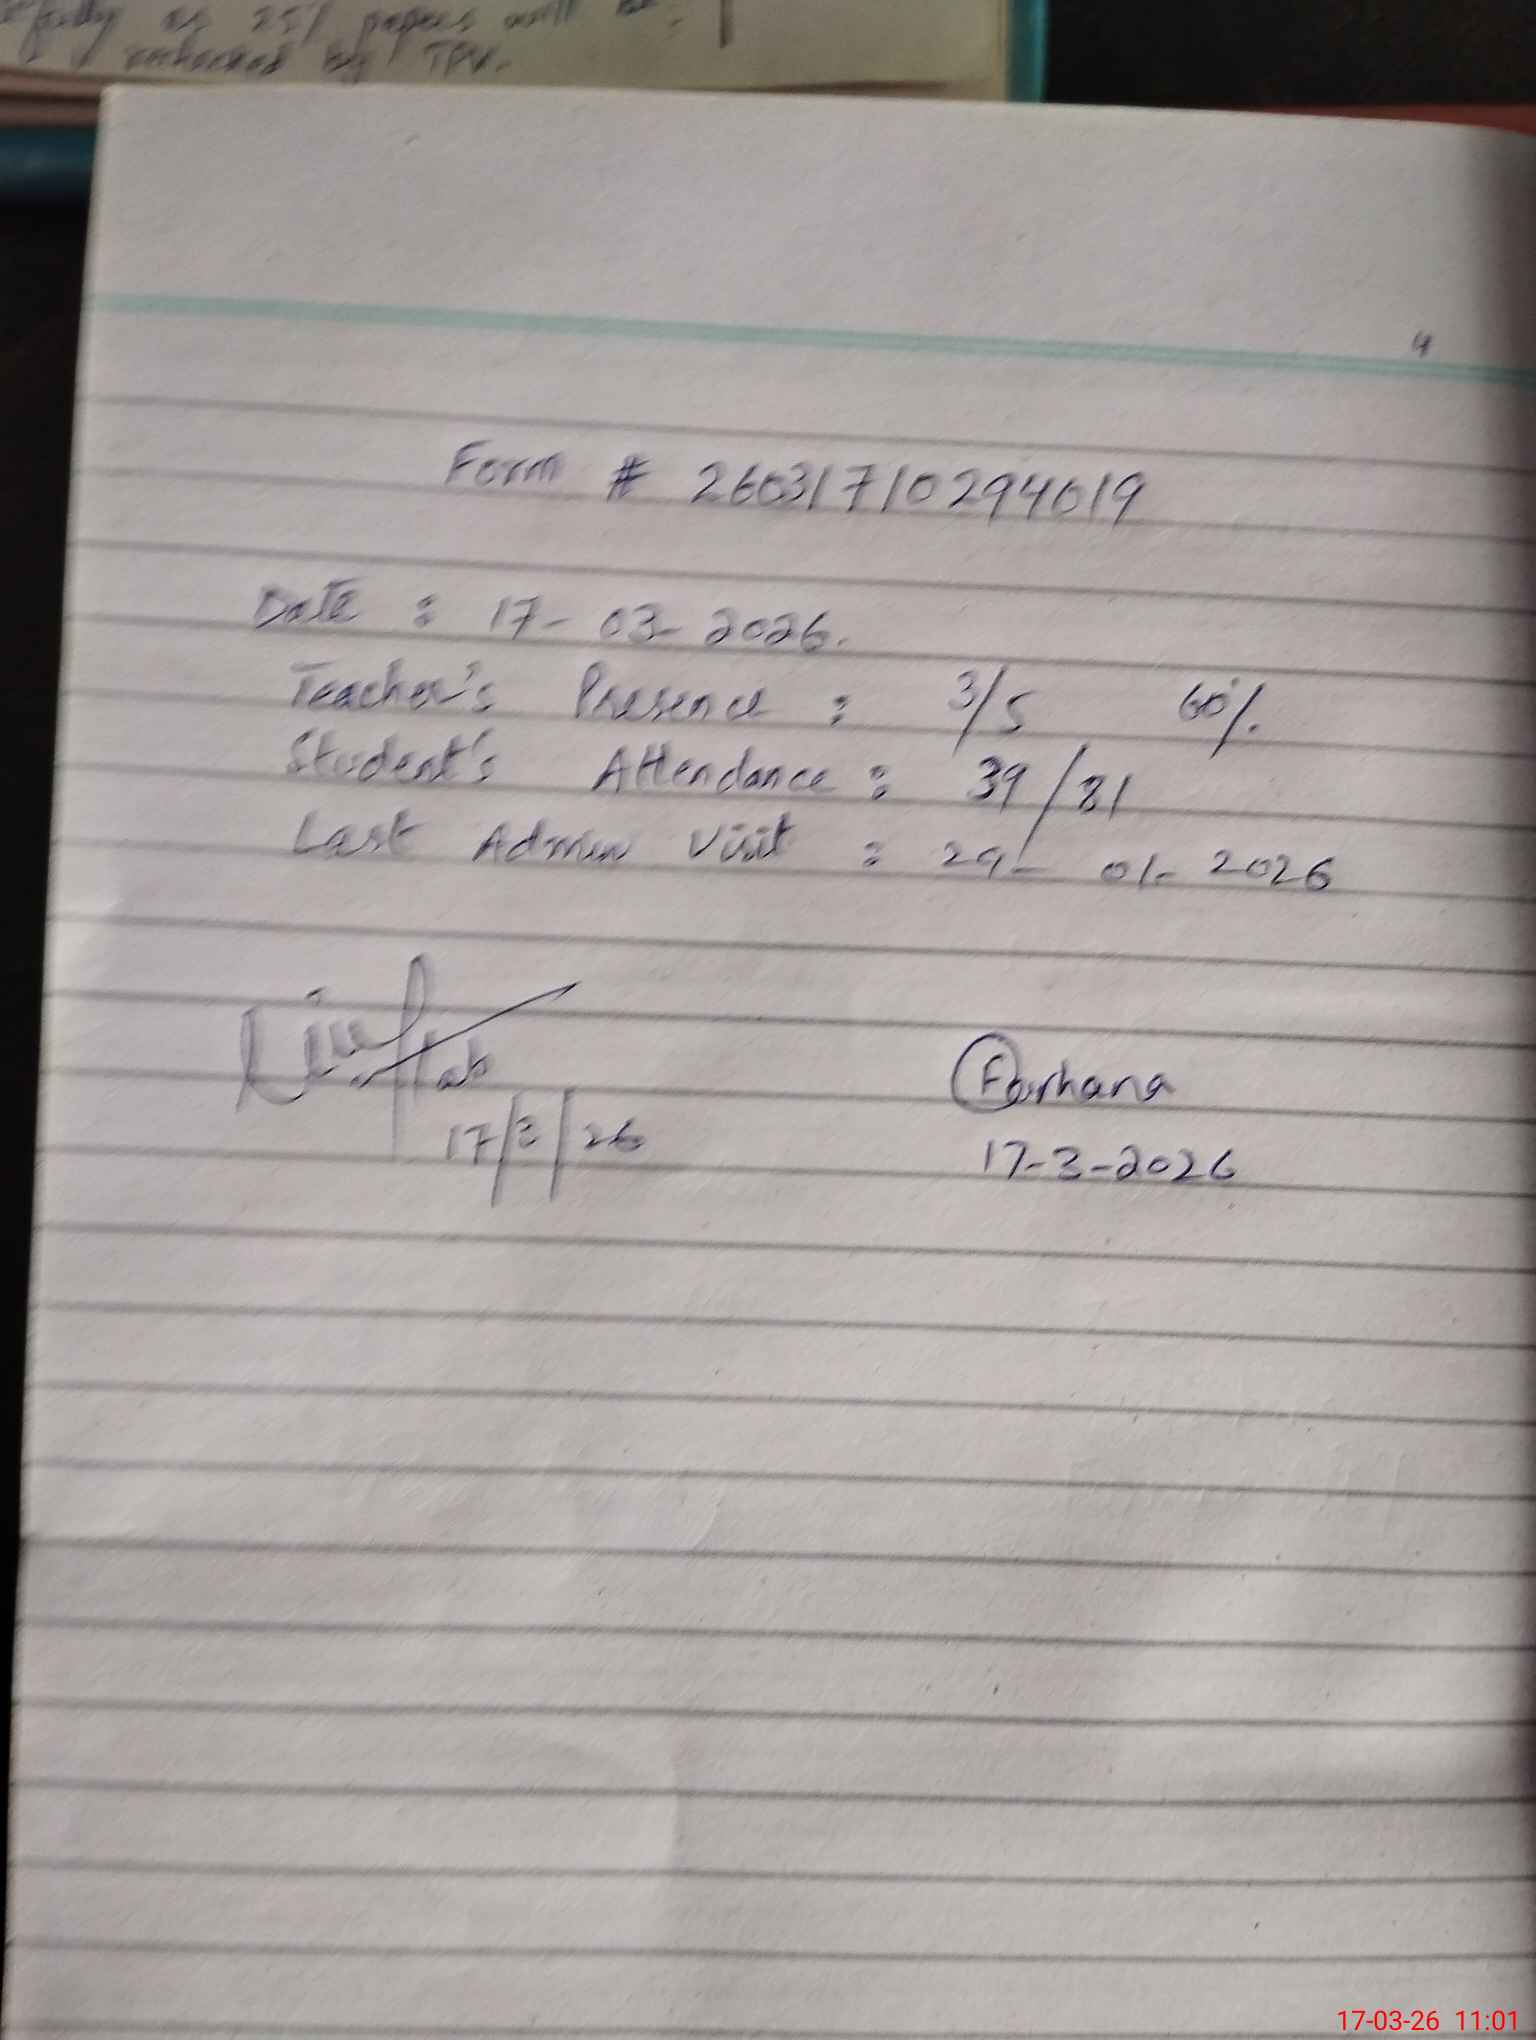 as 25% papers will be
rechecked by TPV.
4
Form # 26031710294019
Date : 17-03-2026.
Teacher's Presence : 3/5 60%.
Student's Attendance : 39/81
Last Admin Visit : 29-01-2026
17/3/26
Farhana
17-3-2026
17-03-26 11:01